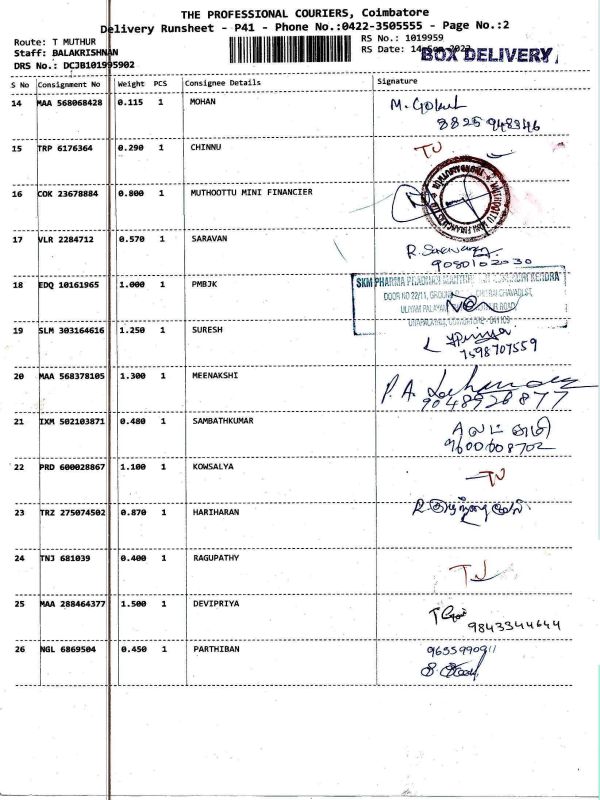 THE PROFESSIONAL COURIERS, Coimbatore
Delivery Runsheet - P41 - Phone No.:0422-3505555 - Page No.:2
Route: T MUTHUR
RS No.: 1019959
Staff: BALAKRISHNAN
RS Date: 14-Sep-2022
BOX DELIVERY
DRS No.: DCJB101995902
S No Consignment No Weight PCS Consignee Details Signature
14 MAA 568068428 0.115 1 MOHAN M. Gokul
8825948346
15 TRP 6176364 0.290 1 CHINNU TJ
16 COK 23678884 0.800 1 MUTHOOTTU MINI FINANCIER
17 VLR 2284712 0.570 1 SARAVAN
9080102030
18 EDQ 10161965 1.000 1 PMBJK
SKM PHARMA PRADHAN MANTRI KENDRA
DOOR NO 22/11,
19 SLM 303164616 1.250 1 SURESH
7598707559
20 MAA 568378105 1.300 1 MEENAKSHI P. A.
9048928877
21 IXM 502103871 0.480 1 SAMBATHKUMAR
9600608702
22 PRD 600028867 1.100 1 KOWSALYA TJ
23 TRZ 275074502 0.870 1 HARIHARAN
24 TNJ 681039 0.400 1 RAGUPATHY TJ
25 MAA 288464377 1.500 1 DEVIPRIYA
9843344644
26 NGL 6869504 0.450 1 PARTHIBAN 9655990911